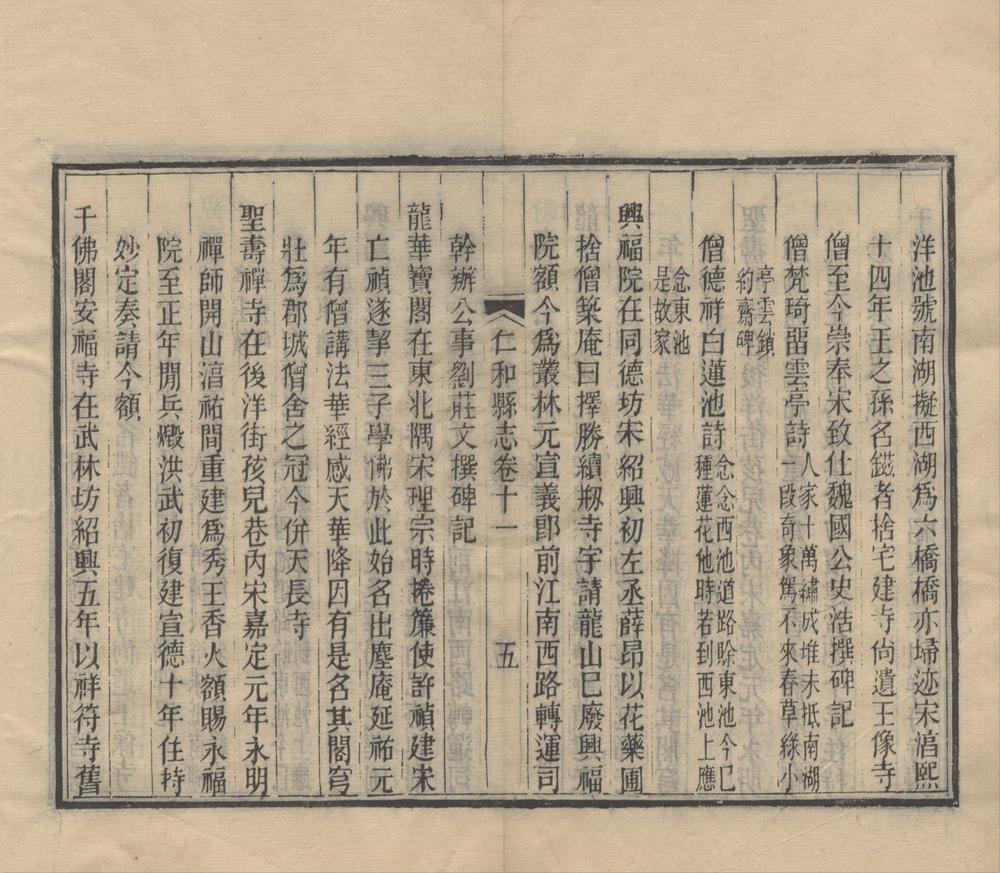 洋池號南湖擬西湖爲六橋橋亦埽迹宋淳熙
十四年王之孫名鎡者捨宅建寺尙遺王像寺
僧至今崇奉宋致仕魏國公史浩撰碑記
僧梵琦留雲亭詩人家十萬繡成堆未抵南湖
一段奇象駕不來春草綠小
亭雲鎖
約齋碑
僧德祥白蓮池詩念念西池道路賒東池今已
種蓮花他時若到西池上應
念東池
是故家
興福院在同德坊宋紹興初左丞薛昂以花藥圃
捨僧築庵曰擇勝續剏寺宇請龍山巳廢興福
院額今爲叢林元宣義郎前江南西路轉運司
仁和縣志卷十一 五
幹辦公事劉莊文撰碑記
龍華寶閣在東北隅宋理宗時捲簾使許禎建宋
亡禎遂挈三子學佛於此始名出塵庵延祐元
年有僧講法華經感天華降因有是名其閣穹
壯爲郡城僧舍之冠今併天長寺
聖壽禪寺在後洋街孩兒巷內宋嘉定元年永明
禪師開山淳祐間重建爲秀王香火額賜永福
院至正年閒兵燬洪武初復建宣德十年住持
妙定奏請今額
千佛閣安福寺在武林坊紹興五年以祥符寺舊